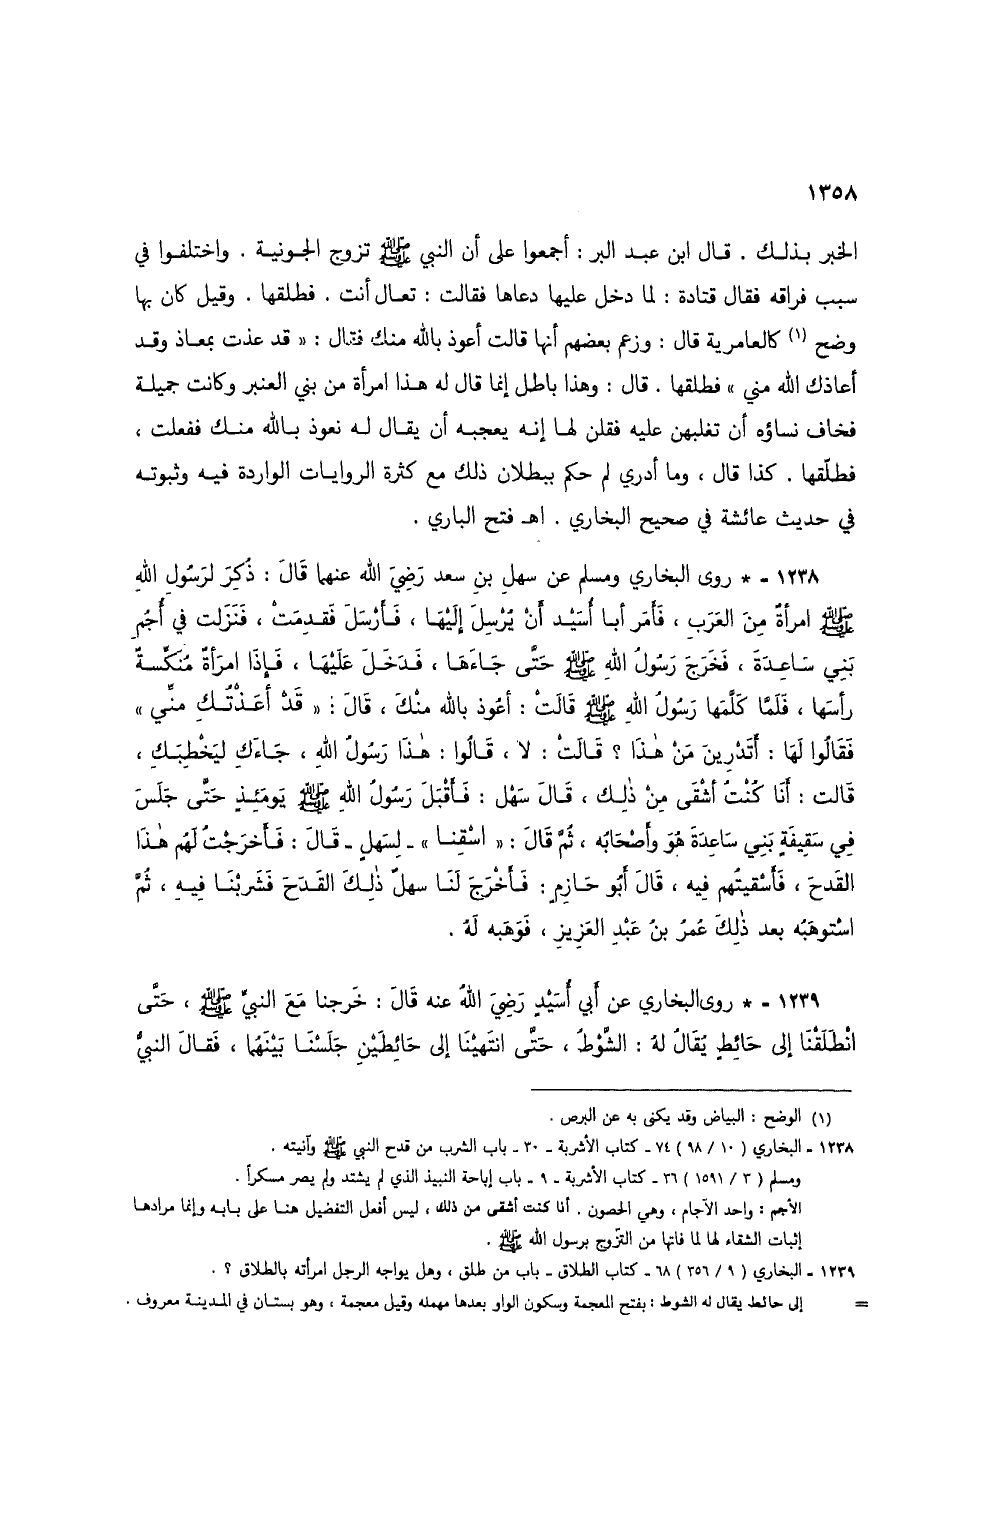 ١٣٥٨
الخبر بـذلـك . قـال ابن عبـد البر : أجمعوا على أن النبي ﷺ تزوج الجـونيـة . واختلفـوا في
سبب فراقه فقال قتادة : لما دخل عليها دعاها فقالت : تعـال أنت . فطلقها . وقيل كان بها
وضح (١) كالعامرية قال : وزعم بعضهم أنها قالت أعوذ بالله منك فقال : « قد عذت بمعاذ وقـد
أعاذك الله مني » فطلقها . قال : وهذا باطل إنما قال له هـذا امرأة من بني العنبر وكانت جميلـة
فخاف نساؤه أن تغلبهن عليه فقلن لهـا إنـه يعجبـه أن يقـال لـه نعوذ بـالله منـك ففعلت ،
فطلّقها . كذا قال ، وما أدري لم حكم ببطلان ذلك مع كثرة الروايـات الواردة فيـه وثبوتـه
في حديث عائشة في صحيح البخاري . اهـ فتح الباري .
١٢٣٨ - * روى البخاري ومسلم عن سهلِ بنِ سعد رَضِيَ الله عنهما قَالَ : ذُكِرَ لرَسُولِ اللهِ
ﷺ امرأةٌ مِنَ العَرَبِ ، فَأَمَر أبـا أُسَيْـد أَنْ يُرْسِلَ إِلَيْهَـا ، فَـأَرْسَلَ فَقـدِمَتْ ، فَنَزَلت في أُجُمِ
بَنِي سَـاعِـدَةَ ، فَخَرَجَ رَسُولُ اللهِ ﷺ حَتَّى جَـاءَهَـا ، فَـدَخَـلَ عَلَيْهَـا ، فَـإِذَا امرَأَةٌ مُنَكِّسـةٌ
رأسَها ، فَلَمَّا كَلَّمَها رَسُولُ اللهِ ﷺ قَالَتْ : أعُوذ بالله منْكَ ، قَالَ : « قَدْ أَعَـذْتُـكِ منِّي »
فَقَالُوا لَهَا : أَتَدْرِينَ مَنْ هٰذَا ؟ قَـالَتْ : لا ، قَـالُوا : هٰذَا رَسُولُ اللهِ ، جـاءَكِ ليَخْطِبَـكِ ،
قَالت : أَنَا كُنْتُ أشْقَى مِنْ ذٰلِـك ، قَـالَ سَهْل : فَـأَقْبَلَ رَسُولُ اللهِ ﷺ يَومَئِـذٍ حَتَّى جَلَسَ
فِي سَقِيفَةِ بَنِي سَاعِدَةَ هُوَ وأَصْحَابُه ، ثُمَّ قَالَ : « اسْقِنـا » ـ لِسَهلٍ ـ قَـالَ : فَـأَخرَجْتُ لَهُم هٰذَا
القَدحَ ، فَأَسْقيتُهم فِيه ، قَالَ أبُو حَـازِمٍ : فَـأَخْرَجَ لَنَـا سهلٌ ذٰلِـكَ القَدَحَ فَشَربْنَـا فِيـهِ ، ثُمَّ
اسْتوهَبَه بعد ذٰلِكَ عُمَرُ بنُ عَبْدِ العَزِيزِ ، فَوَهَبه لَهُ .
١٢٣٩ - * روى البخاري عن أَبي أُسَيْدٍ رَضِيَ اللهُ عنه قَالَ : خَرجنا مَعَ النبيِّ ﷺ ، حَتَّى
انْطَلَقْنَا إلى حَائِطٍ يُقَالُ لهُ : الشَّوْطُ ، حَتَّى انتَهيْنَا إلى حَائِطَيْنِ جَلَسْنَـا بَيْنَهُما ، فَقـالَ النبيُّ
(١) الوضح : البياض وقد يكنى به عن البرص .
١٢٣٨ - البخاري ( ١٠ / ٩٨ ) ٧٤ - كتاب الأشربة - ٣٠ - باب الشرب من قدح النبي ﷺ وآنيته .
ومسلم ( ٣ / ١٥٩١ ) ٣٦ - كتاب الأشربة - ٩ - باب إباحة النبيذ الذي لم يشتد ولم يصر مسكراً .
الأجم : واحد الآجام ، وهي الحصون . أنا كنت أشقى من ذلك ، ليس أفعل التفضيل هنـا على بـابـه وإنما مرادهـا
إثبات الشقاء لها لما فاتها من التزوج برسول الله ﷺ .
١٢٣٩ - البخاري ( ٩ / ٣٥٦ ) ٦٨ - كتاب الطلاق - باب من طلق ، وهل يواجه الرجل امرأته بالطلاق ؟ .
إلى حائط يقال له الشوط : بفتح المعجمة وسكون الواو بعدها مهمله وقيل معجمة ، وهو بستـان في المـدينـة معروف . =